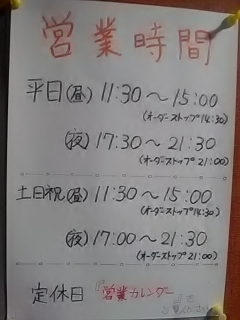 営業時間
平日(昼) 11:30〜15:00
(オーダーストップ14:30)
(夜) 17:30〜21:30
(オーダーストップ21:00)
土日祝(昼) 11:30〜15:00
(オーダーストップ14:30)
(夜) 17:00〜21:30
(オーダーストップ21:00)
定休日 営業カレンダー